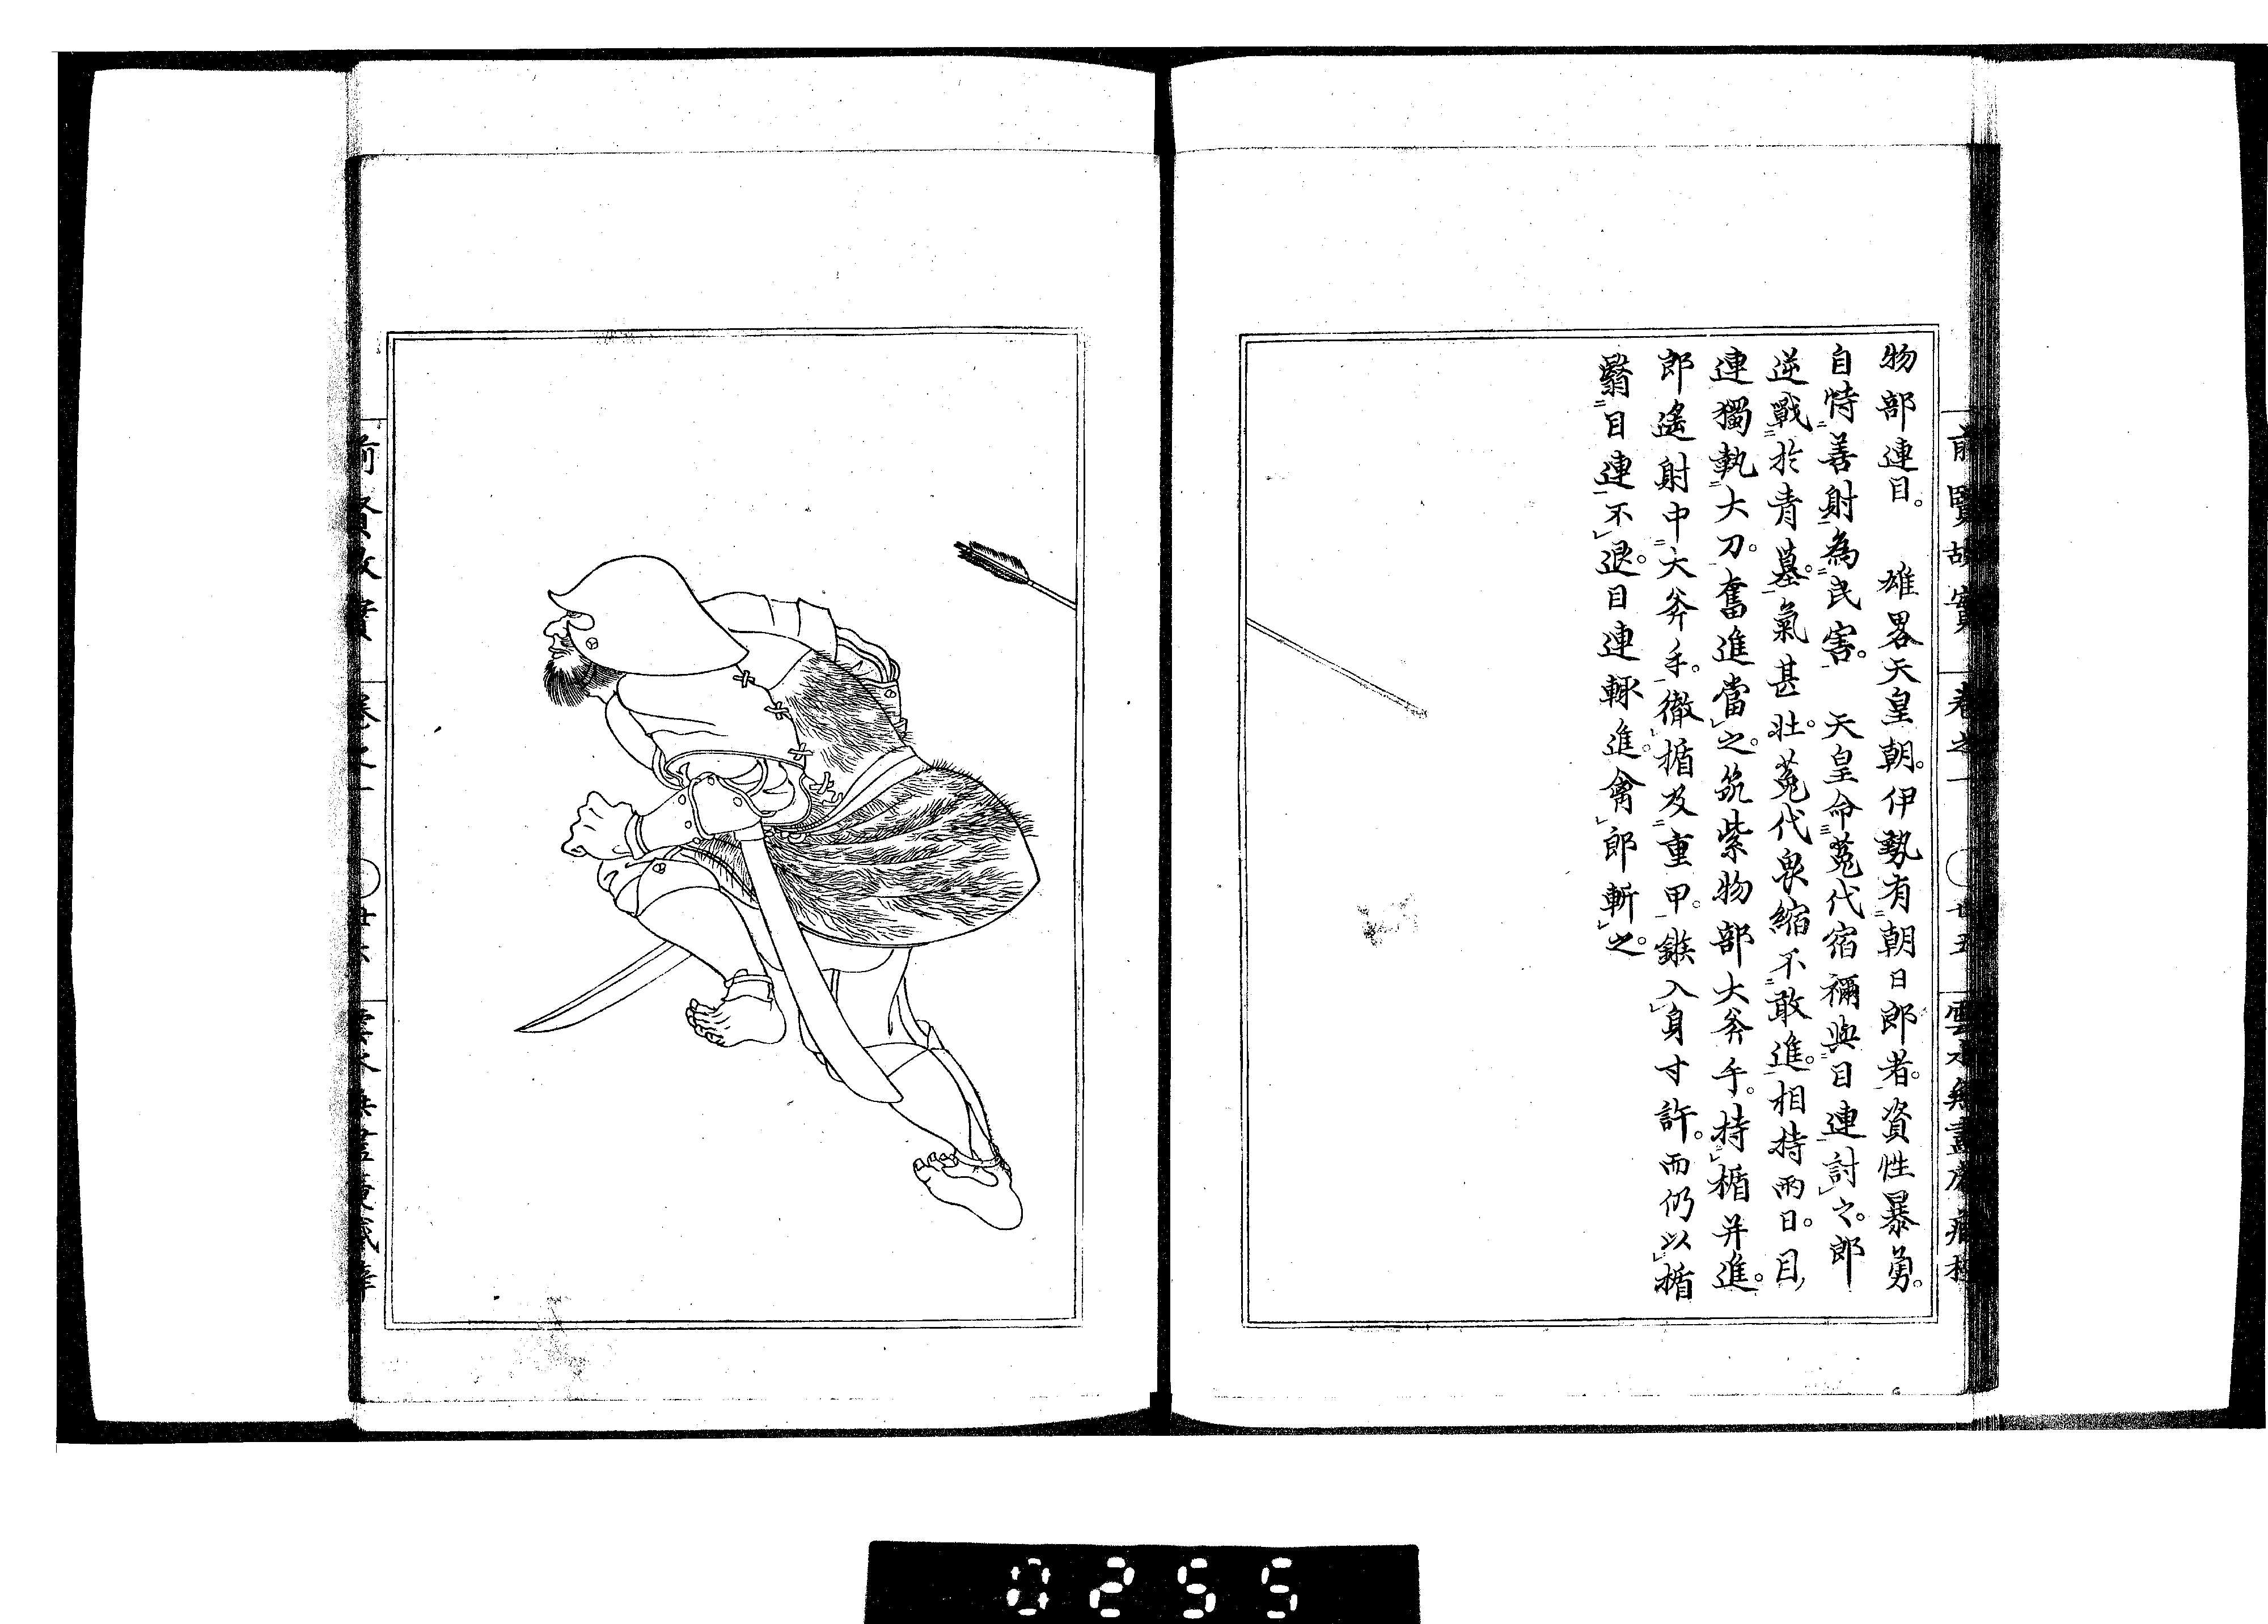 前賢故實 卷之一 〇 廿五 雲水無盡庵
物部連目。 雄畧天皇朝。伊勢有朝日郎者。資性暴勇。
自恃善射為民害。 天皇命菟代宿禰與目連討之。郎
逆戰於青墓。氣甚壯。菟代衆縮不敢進。相持兩日。目
連獨執大刀。奮進當之。筑紫物部大斧手。持楯并進。
郎遙射中大斧手。徹楯及重甲。鏃入身寸許。而仍以楯
翳目連不退。目連輙進。禽郎斬之。
前賢故實 卷之一 〇
0255